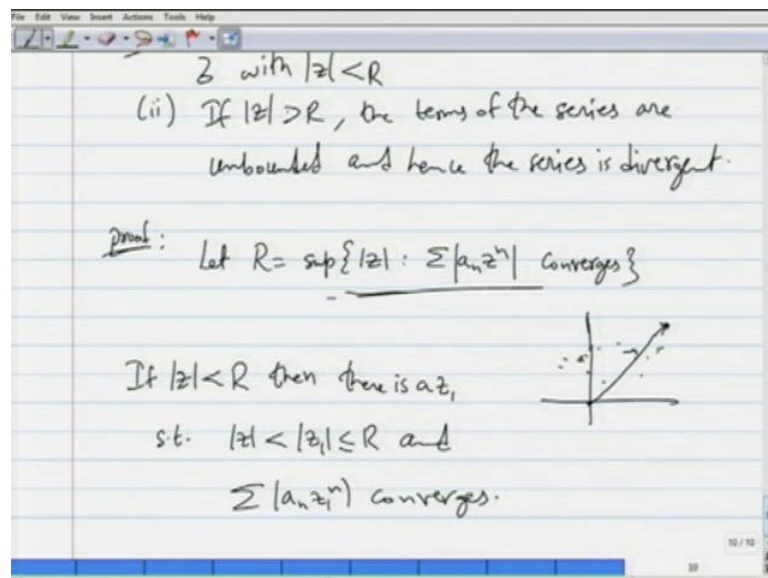 File Edit View Insert Actions Tools Help
z with |z| < R
(ii) If |z| > R, the terms of the series are
unbounded and hence the series is divergent.
Proof: Let R = sup{|z| : Σ|aₙzⁿ| converges}
If |z| < R then there is a z₁
s.t. |z| < |z₁| ≤ R and
Σ|aₙz₁ⁿ) converges.
10 / 10
10